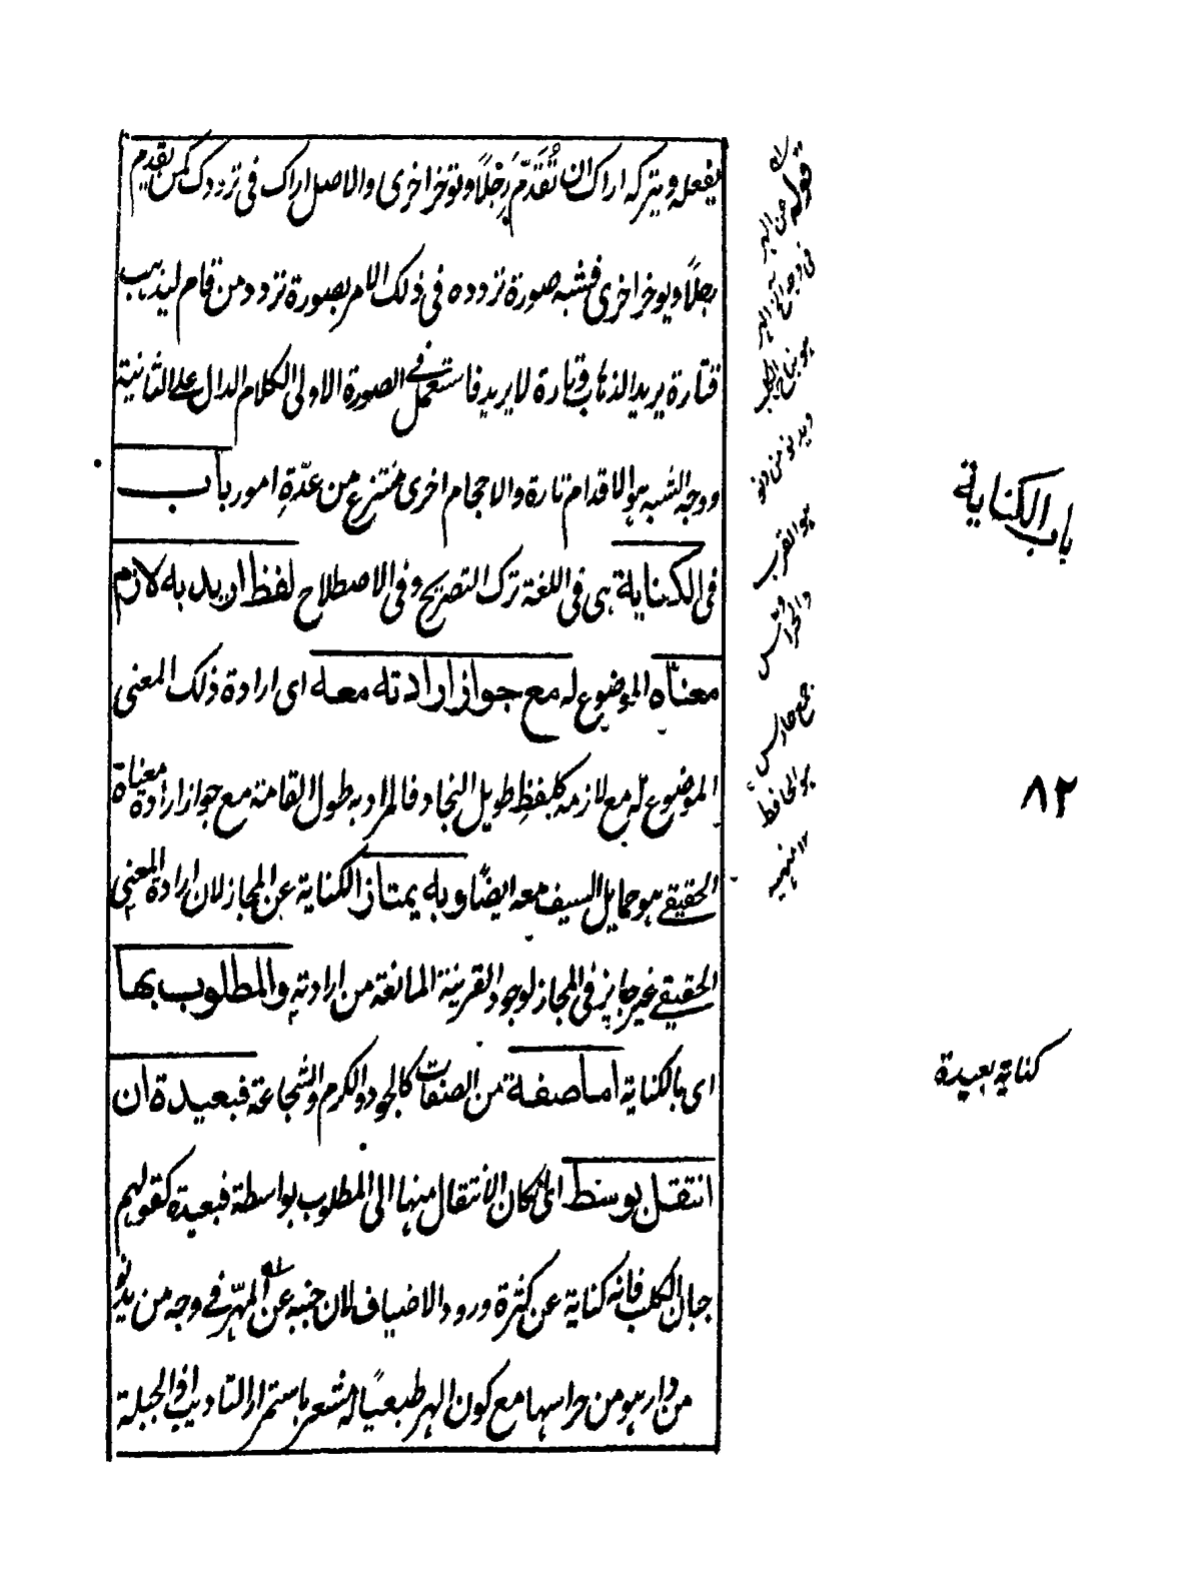 يفعله ويتركه اراك ان تُقَدّمَ رِجْلًا وتوخر اخرى والاصل اراك فى ترددك كمن يقدم
رجلًا ويوخر اخرى فشبه صورة تردده فى ذلك الامر بصورة تردد من قام ليذهب
فتارة يريد الذهاب وتارة لا يريد فاستعمل فى الصورة الاولى الكلام الدال على الثانية
ووجه الشبه هو الاقدام تارة والاحجام اخرى منتزع من عدّةِ امور باب
فى الكناية هى فى اللغة ترك التصريح وفى الاصطلاح لفظ اريد به لازم
معناه الموضوع له مع جواز ارادته معه اى ارادة ذلك المعنى
الموضوع له مع لازمه كلفظِ طويل النجاد فالمراد به طول القامة مع جواز ارادة معناه
الحقيقى هو حمايل السيف معه ايضًا وبه يمتاز الكناية عن المجاز لان ارادة المعنى
الحقيقى غير جايز فى المجاز لوجود القرينة المانعة من ارادته والمطلوب بها
اى بالكناية اما صفة من الصفات كالجود والكرم والشجاعة فبعيدة ان
انتقل بوسط اى ان كان الانتقال منها الى المطلوب بواسطة فبعيدة كقولهم
جبان الكلب فانه كناية عن كثرة ورود الاضياف لان جبنه عن الهرّ فى وجه من يدنو
من دار هو من حراسها مع كون الهر طبعيًا له مشعر باستمرار التاديب فى الجبلة
قوله عن الهر
فى وجه الخ الهر
هو نباح الكلب
ويدنو من دنو
هو القرب
والحراس
جمع حارس
هو الحافظ
١٢ منهيه
باب الكناية
٨٢
كناية بعيدة